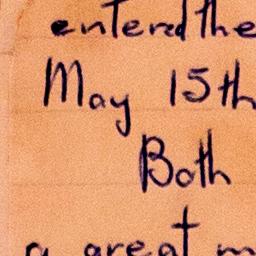 entered the
May 15th
Both
a great m